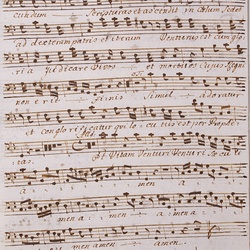 cundum Scripturas et ascendit in Cœlum Sedet
ad dexteram patris et iterum Venturus est cum glo
ria judicare Vivos et mortuos Cujus Regni
non erit Finis Simul adoratur
et conglorificatur qui locutus est per Prophe
tas. Et Vitam Venturi Venturi Sæculi
a men a
men a men a mena
men amen amen